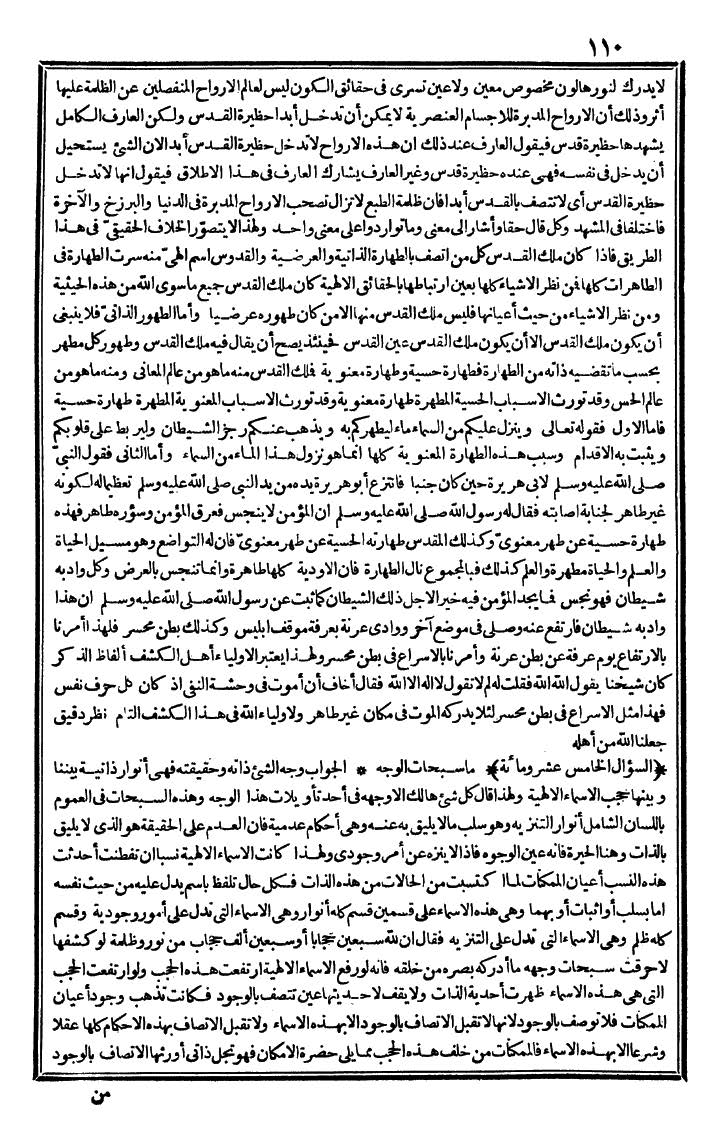 ١١٠
لا يدرك لنورها لون مخصوص معين ولا عين تسرى فى حقائق الكون ليس لعالم الارواح المنفصلين عن الظلمة عليها
أثر وذلك أن الارواح المدبرة للاجسام العنصرية لا يمكن أن تدخل أبدا حظيرة القدس ولكن العارف الكامل
يشهدها حظيرة قدس فيقول العارف عند ذلك ان هذه الارواح لا تدخل حظيرة القدس أبدا لان الشئ يستحيل
أن يدخل فى نفسه فهى عنده حظيرة قدس وغير العارف يشارك العارف فى هذا الاطلاق فيقول انها لا تدخل
حظيرة القدس أى لا تتصف بالقدس أبدا فان ظلمة الطبع لا تزال تصحب الارواح المدبرة فى الدنيا والبرزخ والآخرة
فاختلفا فى المشهد وكل قال حقا وأشار الى معنى وما تواردوا على معنى واحد ولهذا لا يتصوّر الخلاف الحقيقىّ فى هذا
الطريق فاذا كان ملك القدس كل من اتصف بالطهارة الذاتية والعرضية والقدوس اسم الهىّ منه سرت الطهارة فى
الطاهرات كلها فمن نظر الاشياء كلها بعين ارتباطها بالحقائق الالهية كان ملك القدس جميع ما سوى الله من هذه الحيثية
ومن نظر الاشياء من حيث أعيانها فليس ملك القدس منها الا من كان طهوره عرضيا وأما الطهور الذاتىّ فلا ينبغى
أن يكون ملك القدس الا أن يكون ملك القدس عين القدس فحينئذ يصح أن يقال فيه ملك القدس وطهور كل مطهر
بحسب ما تقضيه ذاته من الطهارة فطهارة حسية وطهارة معنوية فملك القدس منه ما هو من عالم المعانى ومنه ما هو من
عالم الحس وقد تورث الاسباب الحسية المطهرة طهارة معنوية وقد تورث الاسباب المعنوية المطهرة طهارة حسية
فاما الاول فقوله تعالى وينزل عليكم من السماء ماء ليطهركم به ويذهب عنكم رجز الشيطان وليربط على قلوبكم
ويثبت به الاقدام وسبب هذه الطهارة المعنوية كلها انما هو نزول هذا الماء من السماء وأما الثانى فقول النبىّ
صلى الله عليه وسلم لابى هريرة حين كان جنبا فانتزع أبو هريرة يده من يد النبى صلى الله عليه وسلم تعظيما له لكونه
غير طاهر لجنابة اصابته فقال له رسول الله صلى الله عليه وسلم ان المؤمن لا ينجس فعرق المؤمن وسؤره طاهر فهذه
طهارة حسية عن طهر معنوىّ وكذلك المقدس طهارته الحسية عن طهر معنوىّ فان له التواضع وهو مسيل الحياة
والعلم والحياة مطهرة والعلم كذلك فبالمجموع نال الطهارة فان الاودية كلها طاهرة وانما تنجس بالعرض وكل واد به
شيطان فهو نجس فما يجد المؤمن فيه خيرا لاجل ذلك الشيطان كما ثبت عن رسول الله صلى الله عليه وسلم ان هذا
واد به شيطان فارتفع عنه وصلى فى موضع آخر ووادى عرنة بعرفة موقف ابليس وكذلك بطن محسر فلهذا أمرنا
بالارتفاع يوم عرفة عن بطن عرنة وأمرنا بالاسراع فى بطن محسر ولهذا يعتبر الاولياء أهل الكشف ألفاظ الذكر
كان شيخنا يقول الله الله فقلت له لم لا تقول لا اله الا الله فقال أخاف أن أموت فى وحشة النفى اذ كان كل حرف نفس
فهذا مثل الاسراع فى بطن محسر لئلا يدركه الموت فى مكان غير طاهر ولاولياء الله فى هذا الكشف التام نظر دقيق
جعلنا الله من أهله
﴿السؤال الخامس عشر ومائة﴾ ما سبحات الوجه * الجواب وجه الشئ ذاته وحقيقته فهى أنوار ذاتية بيننا
وبينها حجب الاسماء الالهية ولهذا قال كل شئ هالك الا وجهه فى أحد تأويلات هذا الوجه وهذه السبحات فى العموم
باللسان الشامل أنوار التنزيه وهو سلب ما لا يليق به عنه وهى أحكام عدمية فان العدم على الحقيقة هو الذى لا يليق
بالذات وهنا الحيرة فانه عين الوجوه فاذا لا ينزه عن أمر وجودى ولهذا كانت الاسماء الالهية نسبا ان تفطنت أحدثت
هذه النسب أعيان الممكنات لما اكتسبت من الحالات من هذه الذات فكل حال تلفظ باسم يدل عليه من حيث نفسه
اما بسلب أو اثبات أو بهما وهى هذه الاسماء على قسمين قسم كله أنوار وهى الاسماء التى تدل على أمور وجودية وقسم
كله ظلم وهى الاسماء التى تدل على التنزيه فقال ان لله سبعين حجابا أو سبعين ألف حجاب من نور وظلمة لو كشفها
لاحرقت سبحات وجهه ما أدركه بصره من خلقه فانه لو رفع الاسماء الالهية ارتفعت هذه الحجب ولو ارتفعت الحجب
التى هى هذه الاسماء ظهرت أحدية الذات ولا يقف لاحديتها عين تتصف بالوجود فكانت تذهب وجود أعيان
الممكنات فلا توصف بالوجود لانها لا تقبل الاتصاف بالوجود الا بهذه الاسماء ولا تقبل الاتصاف بهذه الاحكام كلها عقلا
وشرعا الا بهذه الاسماء فالممكنات من خلف هذه الحجب مما يلى حضرة الامكان فهو تجل ذاتى أورثها الاتصاف بالوجود
من